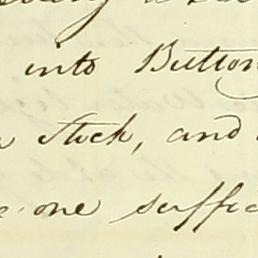 into Button
Stock, and
one suffic